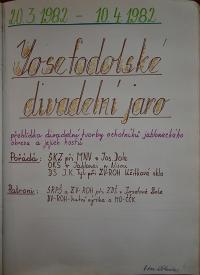 20.3.1982 - 10.4.1982
Josefodolské
divadelní jaro
přehlídka divadelní tvorby ochotníků jabloneckého
okresu a jejich hostů
Pořádá: SKZ při MNV v Jos. Dole
OKS v Jablonci n. Nisou
DS J.K. Tyl při ZV-ROH užitkové sklo
Patroni: SRPŠ a ZV-ROH při ZDŠ v Josefově Dole
DV-ROH-hutní výroba a MO-ČČK